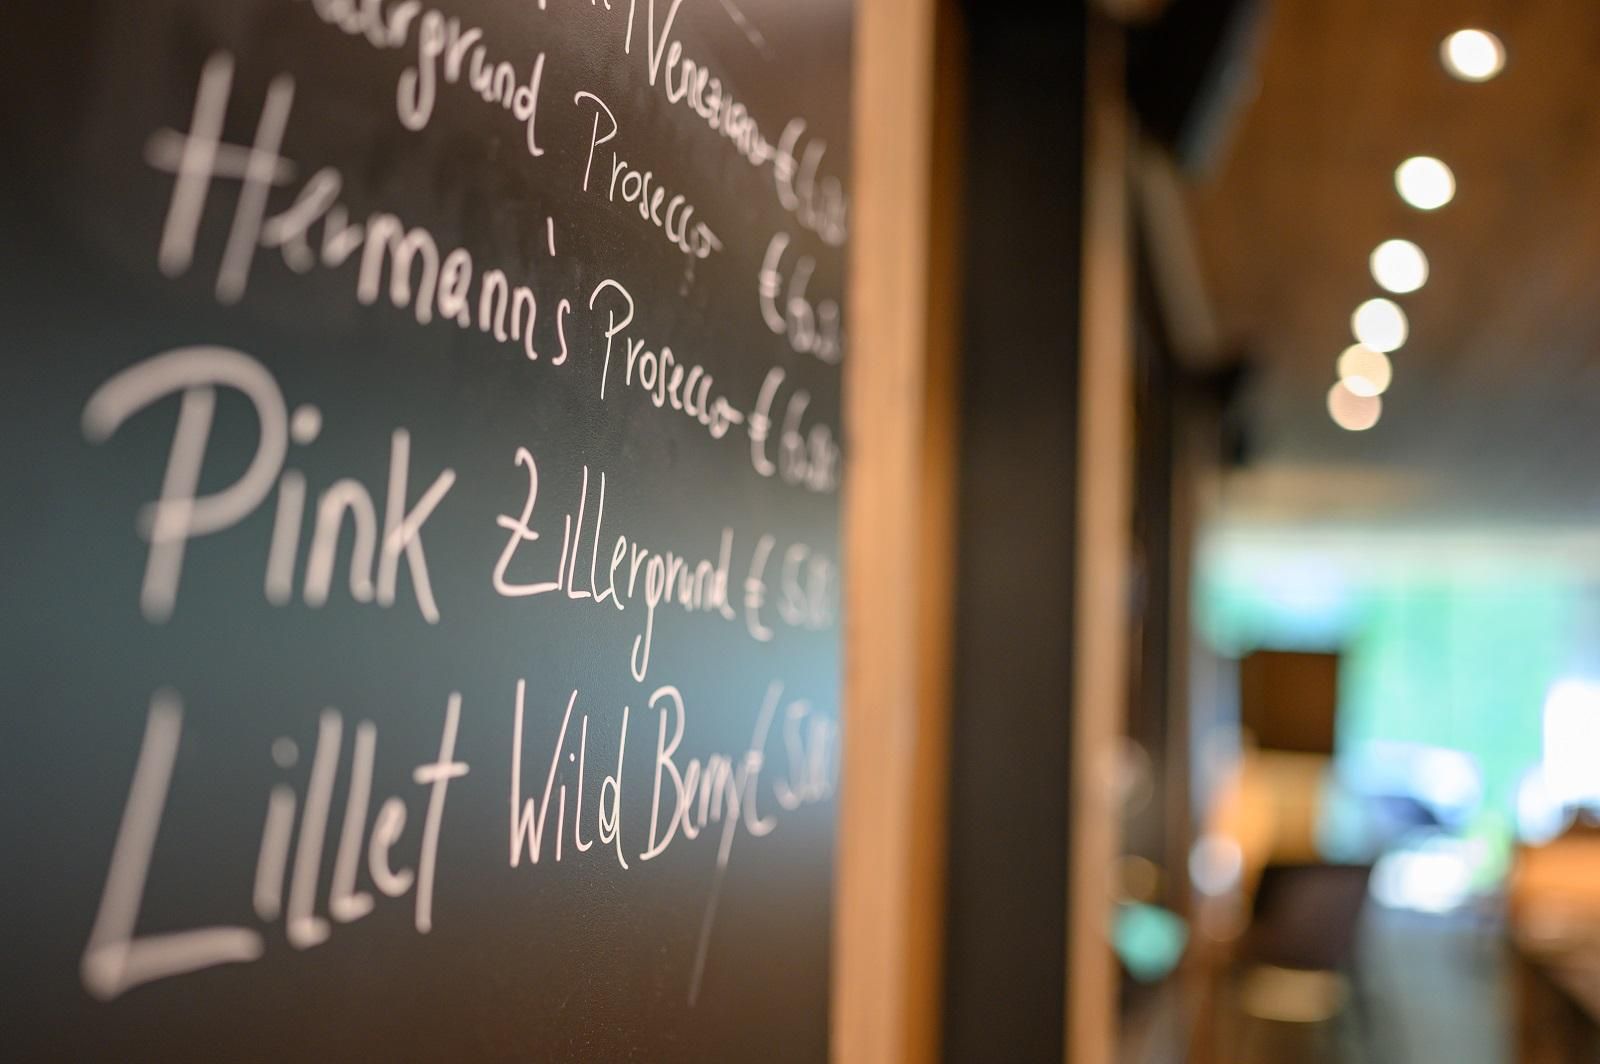 Veneziano €
Prosecco €
Hermann's Prosecco €
Pink Zillergrund €
Lillet Wild Berry €